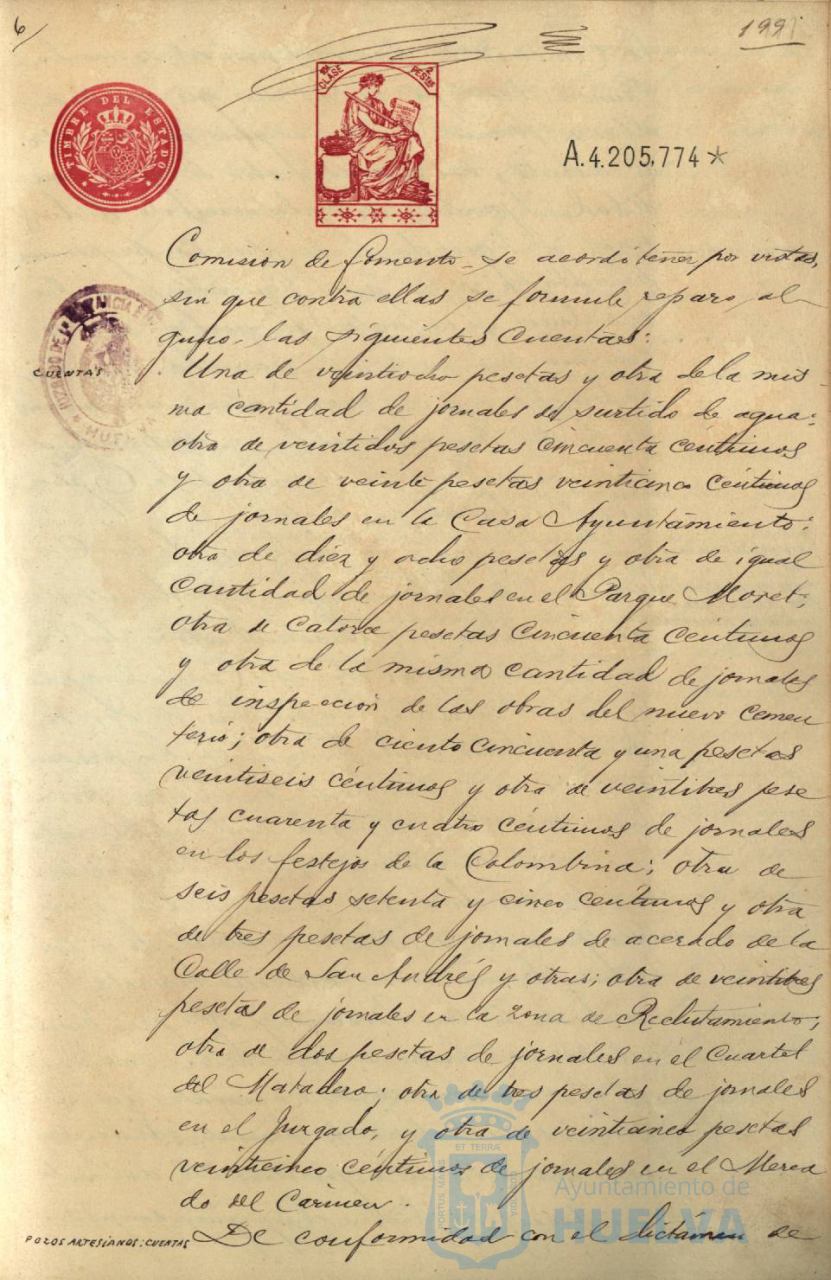 6
199
TIMBRE DEL ESTADO
CLASE
2 PESETAS
A.4.205.774*
Comisión de fomento se acordó tener por vistas,
sin que contra ellas se formule reparo al-
guno, las siguientes cuentas:
CUENTAS
JUZGADO DE 1ª INSTANCIA
HUELVA
Una de veintiocho pesetas y otra de la mis-
ma cantidad de jornales de surtido de agua:
otra de veintidos pesetas cincuenta céntimos
y otra de veinte pesetas veinticinco céntimos
de jornales en la Casa Ayuntamiento:
otra de diez y ocho pesetas y otra de igual
cantidad de jornales en el Parque Moret;
otra de catorce pesetas cincuenta céntimos
y otra de la misma cantidad de jornales
de inspección de las obras del nuevo cemen
terio; otra de ciento cincuenta y una pesetas
veintiseis céntimos y otra de veintitres pese
tas cuarenta y cuatro céntimos de jornales
en los festejos de la Colombina; otra de
seis pesetas setenta y cinco céntimos y otra
de tres pesetas de jornales de acerado de la
Calle de San Andrés y otras; otra de veintitres
pesetas de jornales en la zona de Reclutamiento;
otra de dos pesetas de jornales en el Cuartel
del Matadero; otra de tres pesetas de jornales
en el Juzgado, y otra de veinticinco pesetas
veinticinco céntimos de jornales en el Merca
do del Carmen.
POZOS ARTESIANOS: CUENTAS
De conformidad con el dictámen de
ET TERRÆ
PORTUS MARIS
Ayuntamiento de
HUELVA